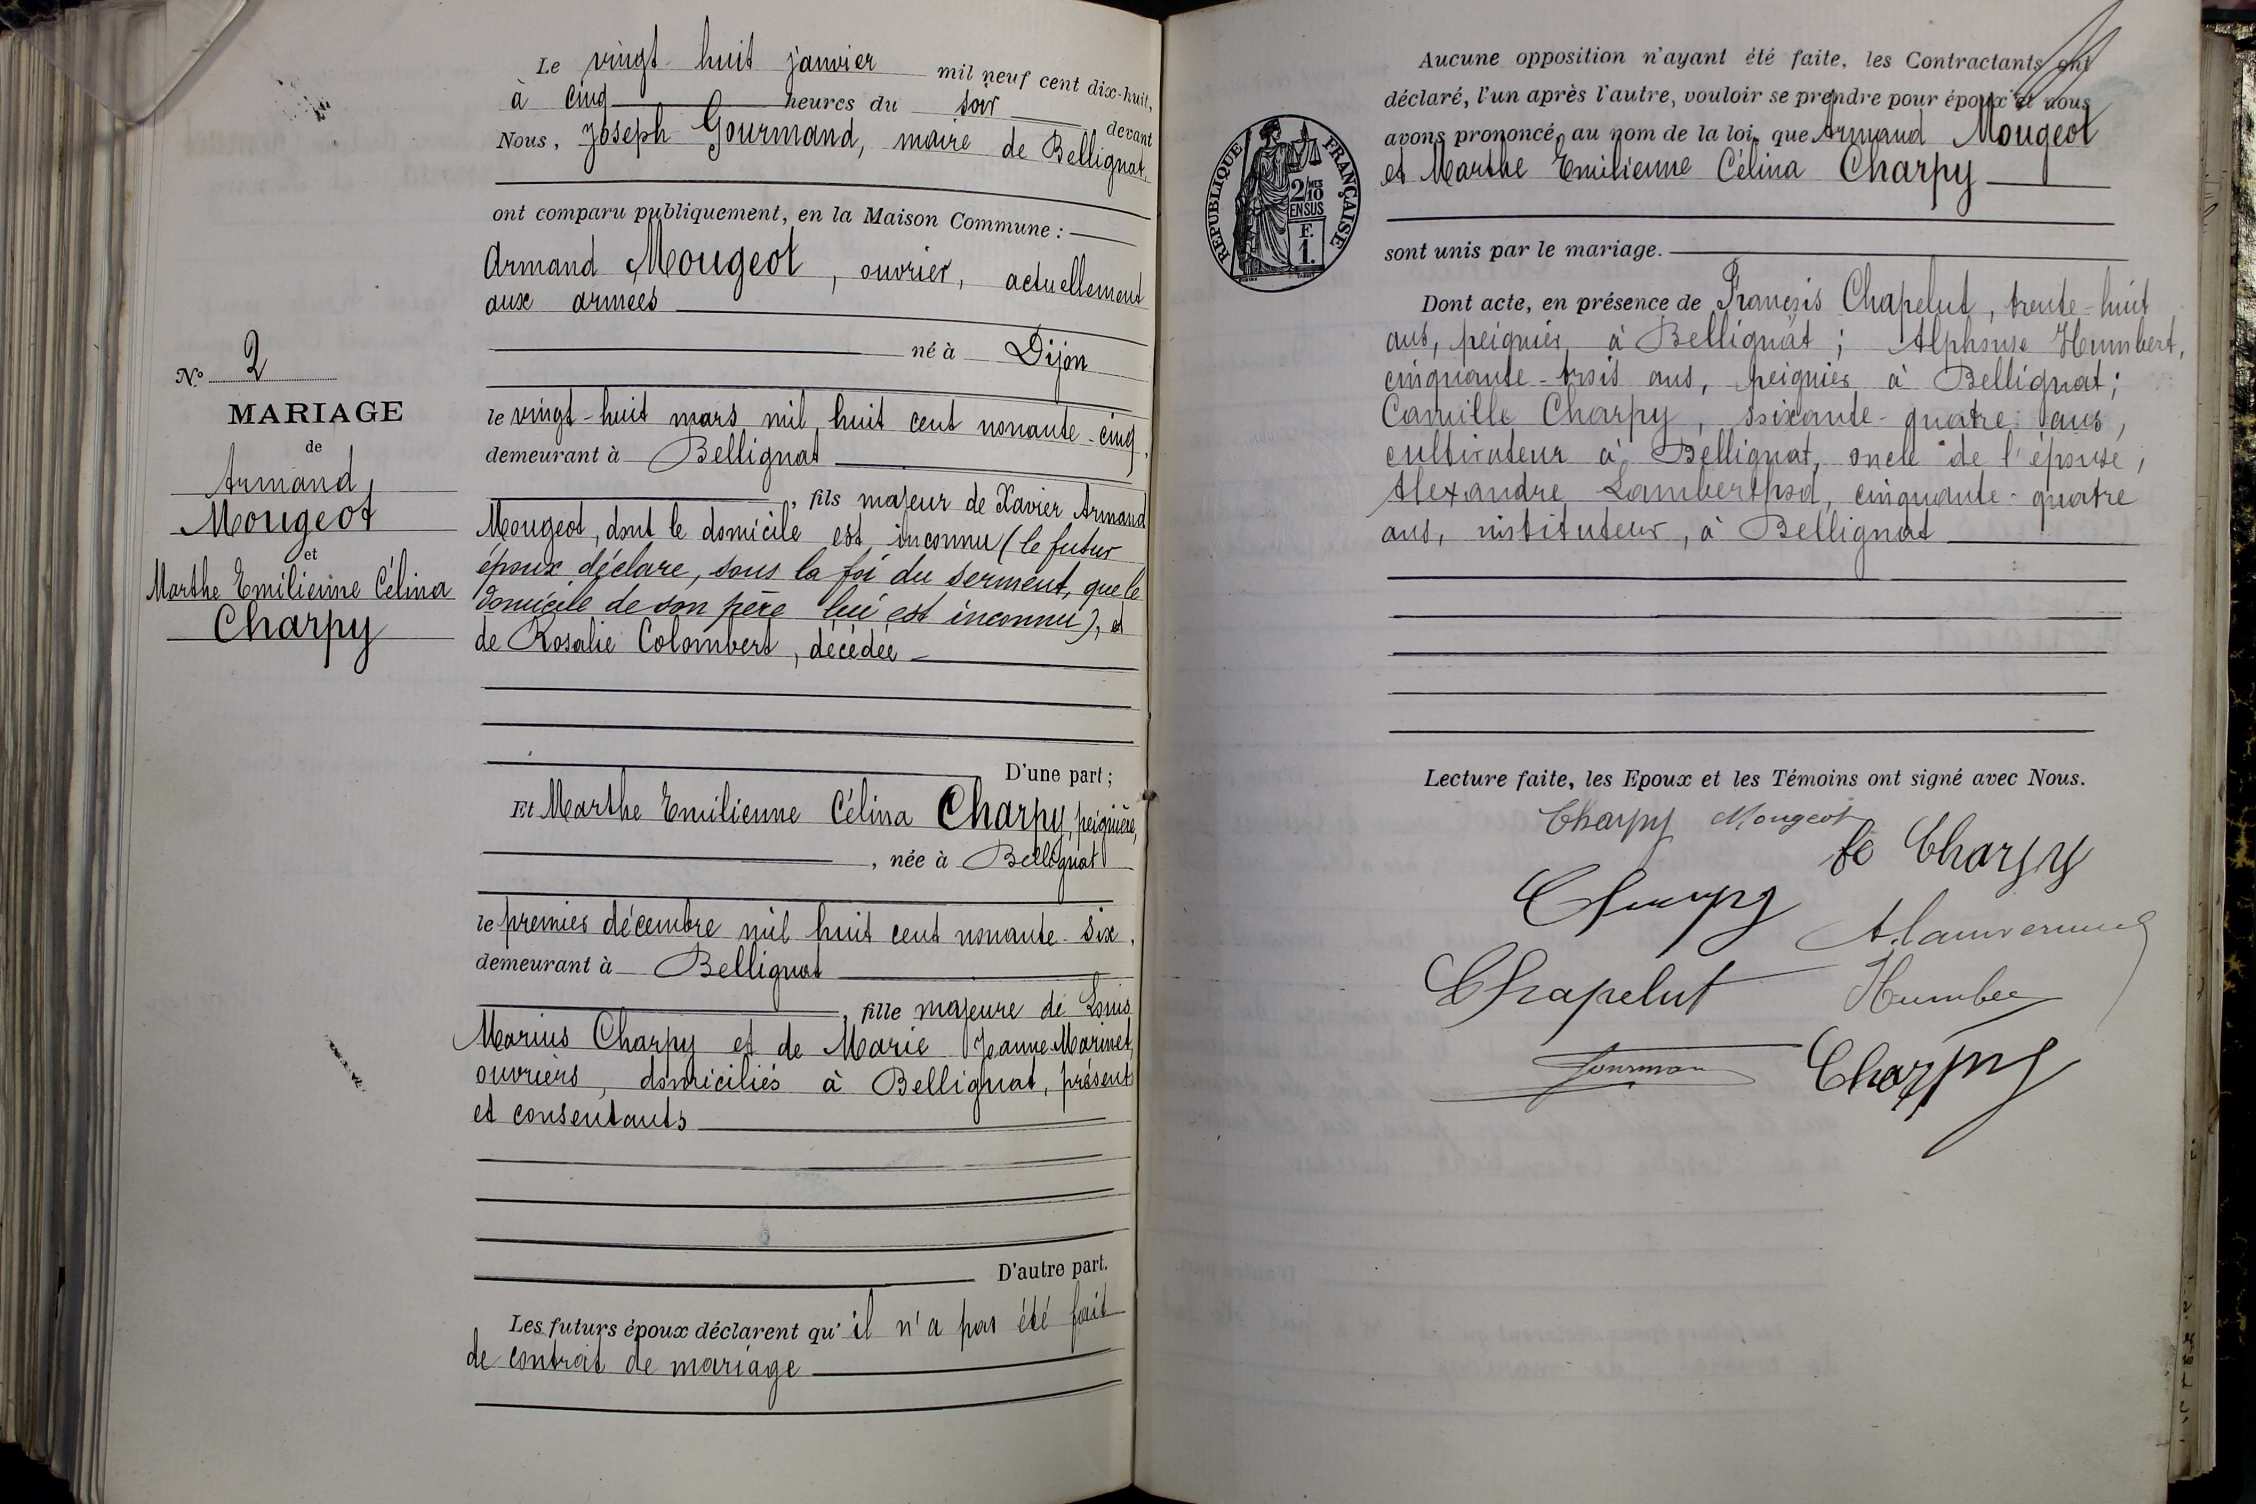 Le vingt-huit janvier mil neuf cent dix-huit,
à cinq heures du soir devant
Nous, Joseph Gourmand, maire de Bellignat,
ont comparu publiquement, en la Maison Commune :
Armand Mougeot, ouvrier, actuellement
aux armées
né à Dijon
le vingt-huit mars mil huit cent nonante-cinq,
demeurant à Bellignat
, fils majeur de Xavier Armand
Mougeot, dont le domicile est inconnu (le futur
époux déclare, sous la foi du serment, que le
domicile de son père lui est inconnu), et
de Rosalie Colombert, décédée
D'une part ;
Et Marthe Emilienne Célina Charpy, peignière,
, née à Bellignat
le premier décembre mil huit cent nonante-six,
demeurant à Bellignat
, fille majeure de Louis
Marius Charpy et de Marie Jeanne Marinet,
ouvriers, domiciliés à Bellignat, présents
et consentants
D'autre part.
Les futurs époux déclarent qu'il n'a pas été fait
de contrat de mariage
No 2
MARIAGE
de
Armand
Mougeot
et
Marthe Emilienne Célina
Charpy
Aucune opposition n'ayant été faite, les Contractants ont
déclaré, l'un après l'autre, vouloir se prendre pour époux et nous
avons prononcé, au nom de la loi, que Armand Mougeot
et Marthe Emilienne Célina Charpy
sont unis par le mariage.
Dont acte, en présence de François Chapelut, trente-huit
ans, peignier, à Bellignat ; Alphonse Humbert,
cinquante-trois ans, peignier à Bellignat ;
Camille Charpy, soixante-quatre ans,
cultivateur à Bellignat, oncle de l'épouse ;
Alexandre cinquante-quatre
ans, instituteur, à Bellignat
Lecture faite, les Epoux et les Témoins ont signé avec Nous.
Charpy Mougeot
Charpy
Charpy
Chapelut
Charpy
RÉPUBLIQUE FRANÇAISE
2/10 MES
EN SUS
F.
1.